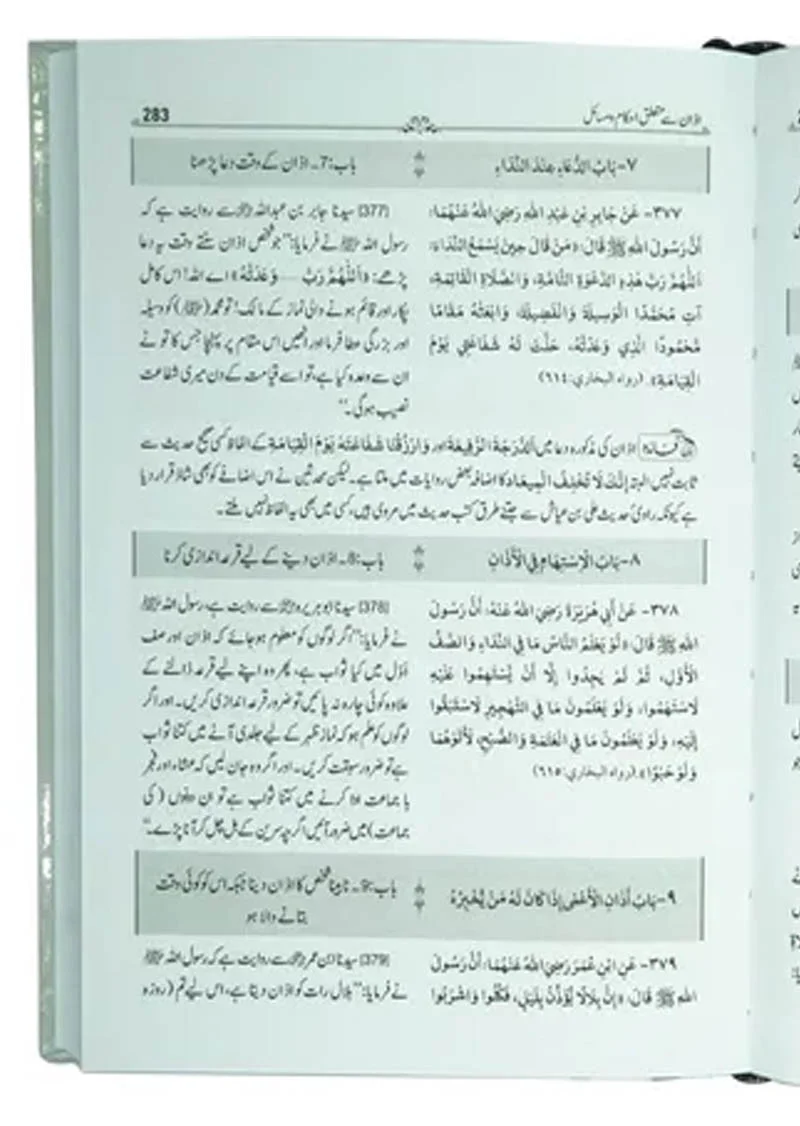 اذان سے متعلق احکام و مسائل 283
٧- بَابُ الدُّعَاءِ عِنْدَ النِّدَاءِ
باب:7۔ اذان کے وقت دعا پڑھنا
٣٧٧- عَنْ جَابِرِ بْنِ عَبْدِ اللهِ رَضِيَ اللهُ عَنْهُمَا:
أَنَّ رَسُولَ اللهِ ﷺ قَالَ: «مَنْ قَالَ حِينَ يَسْمَعُ النِّدَاءَ:
اَللّٰهُمَّ رَبَّ هٰذِهِ الدَّعْوَةِ التَّامَّةِ، وَالصَّلَاةِ الْقَائِمَةِ،
آتِ مُحَمَّدًا الْوَسِيلَةَ وَالْفَضِيلَةَ، وَابْعَثْهُ مَقَامًا
مَحْمُودًا الَّذِي وَعَدْتَهُ، حَلَّتْ لَهُ شَفَاعَتِي يَوْمَ
الْقِيَامَةِ». (رواه البخاري: ٦١٤)
(377) سیدنا جابر بن عبداللہ ؓ سے روایت ہے کہ
رسول اللہ ﷺ نے فرمایا: ”جو شخص اذان سنتے وقت یہ دعا
پڑھے: «اَللّٰهُمَّ رَبَّ ...... وَعَدْتَهُ» اے اللہ! اس کامل
پکار اور قائم ہونے والی نماز کے مالک! تو محمد (ﷺ) کو وسیلہ
اور بزرگی عطا فرما اور انھیں اس مقام پر پہنچا جس کا تو نے
ان سے وعدہ کیا ہے، تو اسے قیامت کے دن میری شفاعت
نصیب ہوگی۔“
فائدہ اذان کی مذکورہ دعا میں اَلدَّرَجَةَ الرَّفِيعَةَ اور وَارْزُقْنَا شَفَاعَتَهُ يَوْمَ الْقِيَامَةِ کے الفاظ کسی صحیح حدیث سے
ثابت نہیں البتہ إِنَّكَ لَا تُخْلِفُ الْمِيعَادَ کا اضافہ بعض روایات میں ملتا ہے۔ لیکن محدثین نے اس اضافے کو بھی شاذ قرار دیا
ہے کیونکہ راویٔ حدیث علی بن عیاش سے جتنے طرق کتب حدیث میں مروی ہیں، کسی میں بھی یہ الفاظ نہیں ملتے۔
٨- بَابُ الْاِسْتِهَامِ فِي الْأَذَانِ
باب:8۔ اذان دینے کے لیے قرعہ اندازی کرنا
٣٧٨- عَنْ أَبِي هُرَيْرَةَ رَضِيَ اللهُ عَنْهُ: أَنَّ رَسُولَ
اللهِ ﷺ قَالَ: «لَوْ يَعْلَمُ النَّاسُ مَا فِي النِّدَاءِ وَالصَّفِّ
الْأَوَّلِ، ثُمَّ لَمْ يَجِدُوا إِلَّا أَنْ يَسْتَهِمُوا عَلَيْهِ
لَاسْتَهَمُوا، وَلَوْ يَعْلَمُونَ مَا فِي التَّهْجِيرِ لَاسْتَبَقُوا
إِلَيْهِ، وَلَوْ يَعْلَمُونَ مَا فِي الْعَتَمَةِ وَالصُّبْحِ، لَأَتَوْهُمَا
وَلَوْ حَبْوًا». (رواه البخاري: ٦١٥)
(378) سیدنا ابو ہریرہ ؓ سے روایت ہے، رسول اللہ ﷺ
نے فرمایا: ”اگر لوگوں کو معلوم ہو جائے کہ اذان اور صف
اول میں کیا ثواب ہے، پھر وہ اپنے لیے قرعہ ڈالنے کے
علاوہ کوئی چارہ نہ پائیں تو ضرور قرعہ اندازی کریں۔ اور اگر
لوگوں کو علم ہو کہ نماز ظہر کے لیے جلدی آنے میں کتنا ثواب
ہے تو ضرور سبقت کریں۔ اور اگر وہ جان لیں کہ عشاء اور فجر
با جماعت ادا کرنے میں کتنا ثواب ہے تو ان دونوں (کی
جماعت) میں ضرور آئیں اگرچہ سرین کے بل چل کر آنا پڑے۔“
٩- بَابُ أَذَانِ الْأَعْمٰى إِذَا كَانَ لَهُ مَنْ يُخْبِرُهُ
باب:9۔ نابینا شخص کا اذان دینا جبکہ اس کو کوئی وقت
بتانے والا ہو
٣٧٩- عَنِ ابْنِ عُمَرَ رَضِيَ اللهُ عَنْهُمَا: أَنَّ رَسُولَ
اللهِ ﷺ قَالَ: «إِنَّ بِلَالًا يُؤَذِّنُ بِلَيْلٍ، فَكُلُوا وَاشْرَبُوا
(379) سیدنا ابن عمر ؓ سے روایت ہے کہ رسول اللہ ﷺ
نے فرمایا: ”بلال رات کو اذان دیتا ہے، اس لیے تم (روزہ